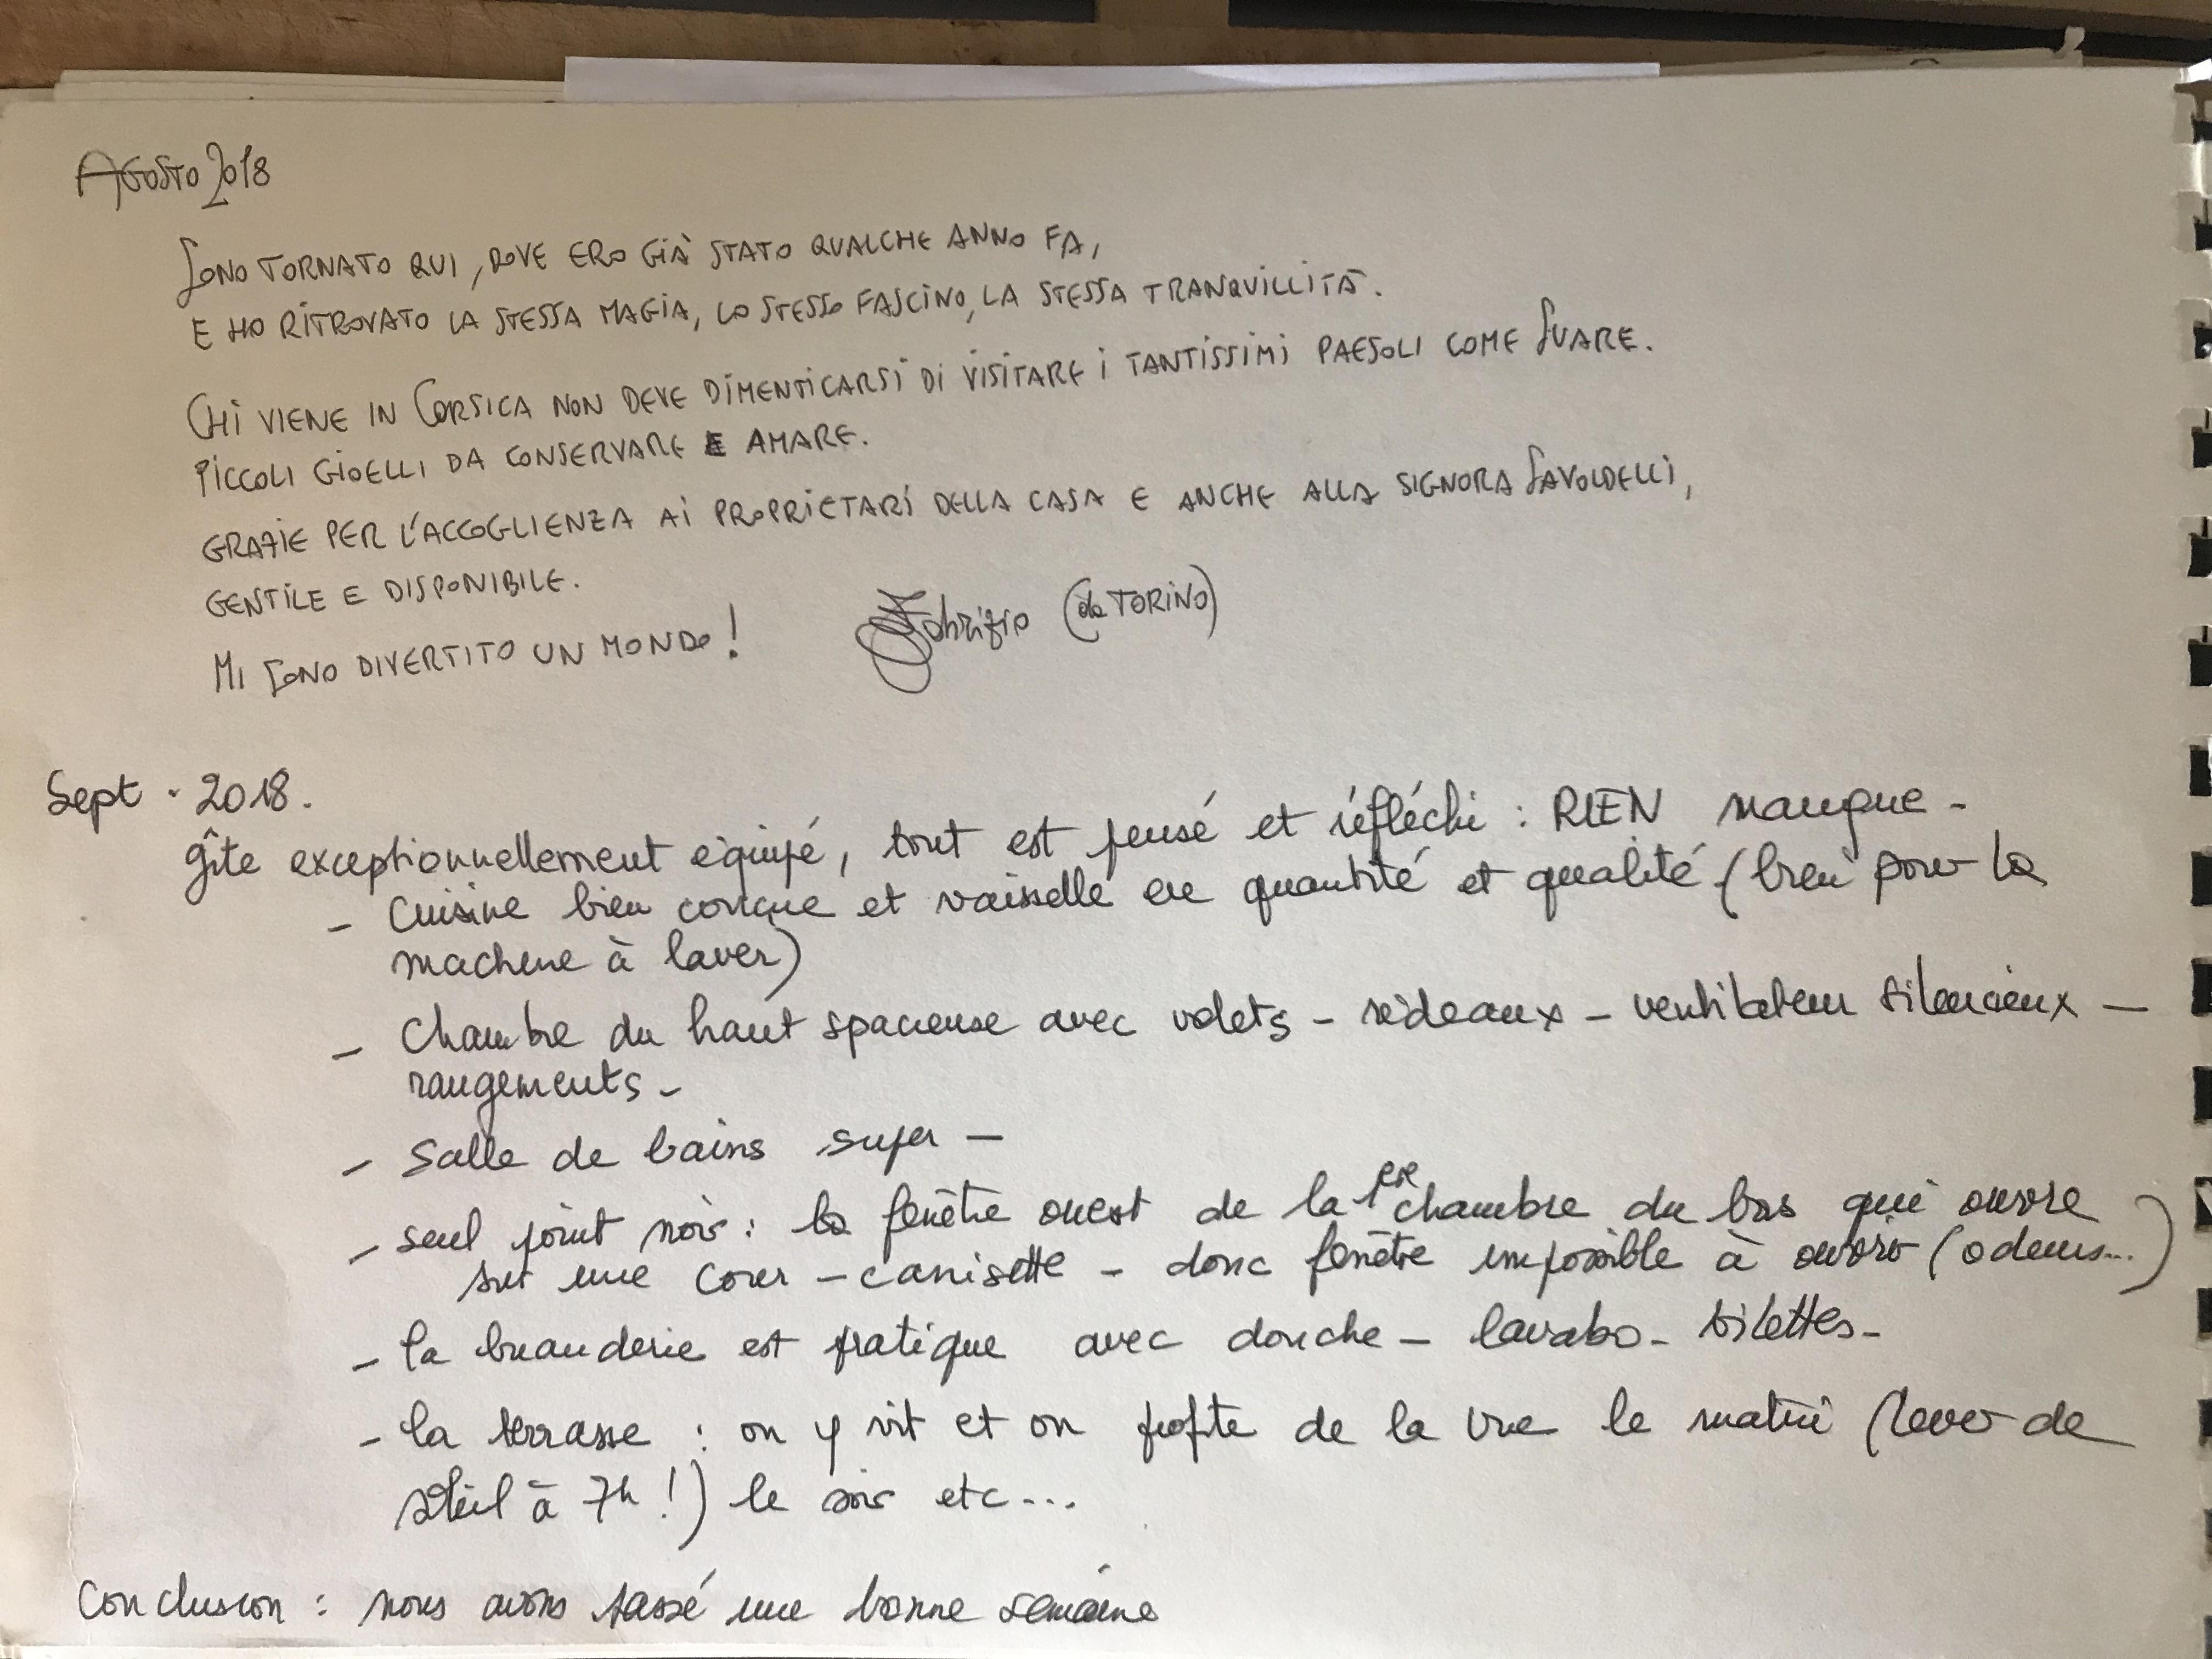 AGOSTO 2018
SONO TORNATO QUI, DOVE ERO GIÀ STATO QUALCHE ANNO FA,
E HO RITROVATO LA STESSA MAGIA, LO STESSO FASCINO, LA STESSA TRANQUILLITÀ.
CHI VIENE IN CORSICA NON DEVE DIMENTICARSI DI VISITARE I TANTISSIMI PAESOLI COME SUARE.
PICCOLI GIOELLI DA CONSERVARE E AMARE.
GRAZIE PER L'ACCOGLIENZA AI PROPRIETARI DELLA CASA E ANCHE ALLA SIGNORA SAVOLDELLI,
GENTILE E DISPONIBILE.
MI SONO DIVERTITO UN MONDO! Fabrizio (da TORINO)
Sept. 2018.
gîte exceptionnellement équipé, tout est pensé et réfléchi : RIEN manque -
- Cuisine bien conçue et vaisselle en quantité et qualité (bien pour la
machine à laver)
- Chambre du haut spacieuse avec volets - rideaux - ventilateur silencieux -
rangements -
- Salle de bains super -
- seul point noir : la fenêtre ouest de la 1ère chambre du bas qui ouvre
sur une cour - canisette - donc fenêtre impossible à ouvrir (odeurs...)
- la buanderie est pratique avec douche - lavabo - toilettes -
- la terrasse : on y vit et on profite de la vue le matin (lever de
soleil à 7h !) le soir etc...
Conclusion : nous avons passé une bonne semaine